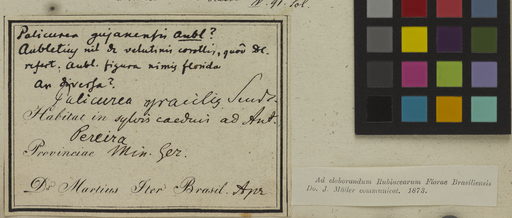 IV. 91. Sol.
Palicurea gujanensis Aubl?
Aubletius nil de velutinis corollis, quod DC.
refert. Aubl. figura nimis florida
An diversa?
Palicurea gracilis
Habitat in sylvis caeduis ad Ant.
Pereira
Provinciae Min. Ger.
Dr Martius Iter Brasil. Apr
Ad elaborandum Rubiacearum Florae Brasiliensis
Do. J. Müller communicat. 1873.